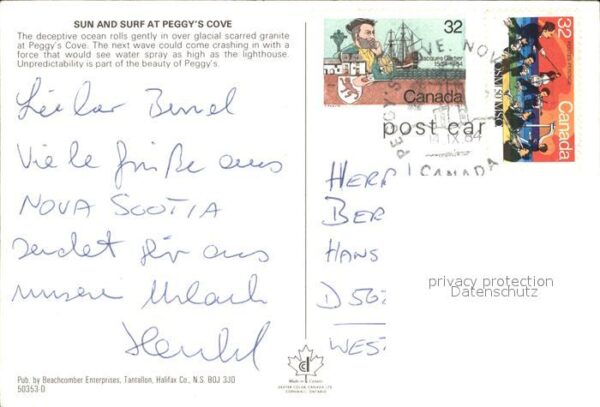 SUN AND SURF AT PEGGY'S COVE
The deceptive ocean rolls gently in over glacial scarred granite
at Peggy's Cove. The next wave could come crashing in with a
force that would see water spray as high as the lighthouse.
Unpredictability is part of the beauty of Peggy's.
Lieber
Viele Grüße aus
NOVA SCOTIA
sendet Dir aus
unserem Urlaub
Pub. by Beachcomber Enterprises, Tantallon, Halifax Co., N.S. B0J 3J0
50353-D
32
Jacques Cartier
1534-1984
Canada
32
Canada
post car
PEGGY'S
VE. NOV
IX 84
CANADA
HERR
BER
HANS
D 562
WEST
privacy protection
Datenschutz
Made in Canada
DEXTER COLOR CANADA LTD
CORNWALL, ONTARIO